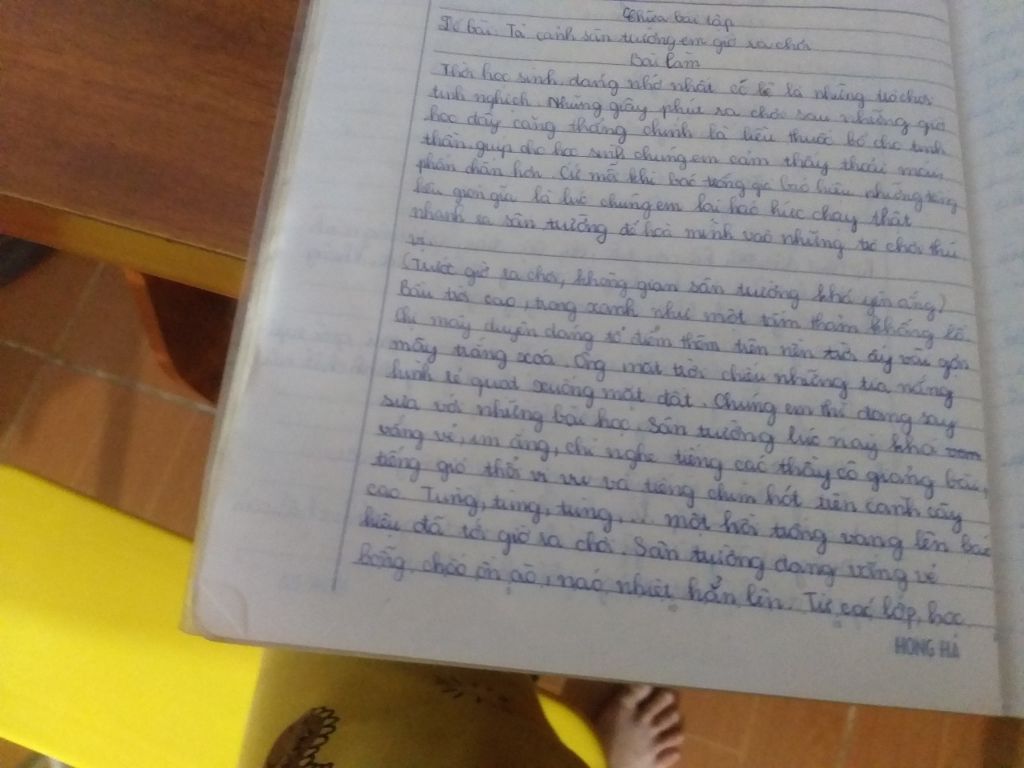 Chữa bài tập
Đề bài: Tả cảnh sân trường em giờ ra chơi
Bài làm
Thời học sinh, đáng nhớ nhất có lẽ là những trò chơi
tinh nghịch. Những giây phút ra chơi sau những giờ
học đầy căng thẳng chính là liều thuốc bổ cho tinh
thần, giúp cho học sinh chúng em cảm thấy thoải mái,
phấn chấn hơn. Cứ mỗi khi bác trống gióng báo hiệu những tiếng
kêu giòn giã là lúc chúng em lại háo hức chạy thật
nhanh ra sân trường để hoà mình vào những trò chơi thú
vị.
(Trước giờ ra chơi, không gian sân trường khá yên ắng)
Bầu trời cao, trong xanh như một tấm thảm khổng lồ.
Chị mây duyên dáng tô điểm thêm trên nền trời ấy vài gợn
mây trắng xoá. Ông mặt trời chiếu những tia nắng
hình rẻ quạt xuống mặt đất. Chúng em thì đang say
sưa với những bài học. Sân trường lúc này khá
vắng vẻ, im ắng, chỉ nghe tiếng các thầy cô giảng bài,
tiếng gió thổi vi vu và tiếng chim hót trên cành cây
cao. Tùng, tùng, tùng,... một hồi trống vang lên báo
hiệu đã tới giờ ra chơi. Sân trường đang vắng vẻ
bỗng chốc ồn ào, náo nhiệt hẳn lên. Từ các lớp, học
HONG HÀ